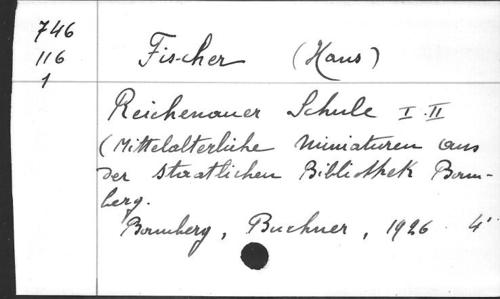 746
116
1
Fischer (Hans)
Reichenauer Schule I-II
(Mittelalterliche Miniaturen aus
der Staatlichen Bibliothek Bam-
berg.
Bamberg, Buchner, 1926 4°